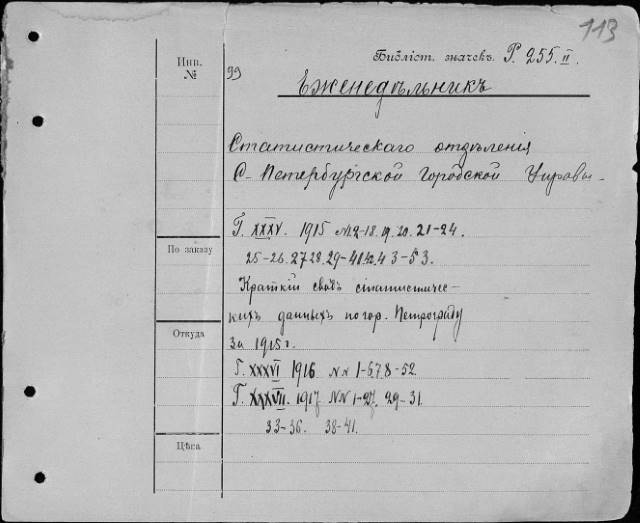 113
Библіот. значекъ Р. 255. II.
Инв. №
99
Еженедѣльникъ
Статистическаго отдѣленія
С-Петербургской Городской Управы.
Г. XXXV. 1915 №№ 2-18. 19. 20. 21-24.
По заказу
25-26. 27 28. 29-41. 42. 43-53.
Краткій сводъ статистичес-
кихъ данныхъ по гор. Петрограду
Откуда
за 1915 г.
Г. XXXVI 1916 NN 1-6 7 8-52.
Г. XXXVII. 1917 NN 1-27. 29-31.
33-36. 38-41.
Цѣна